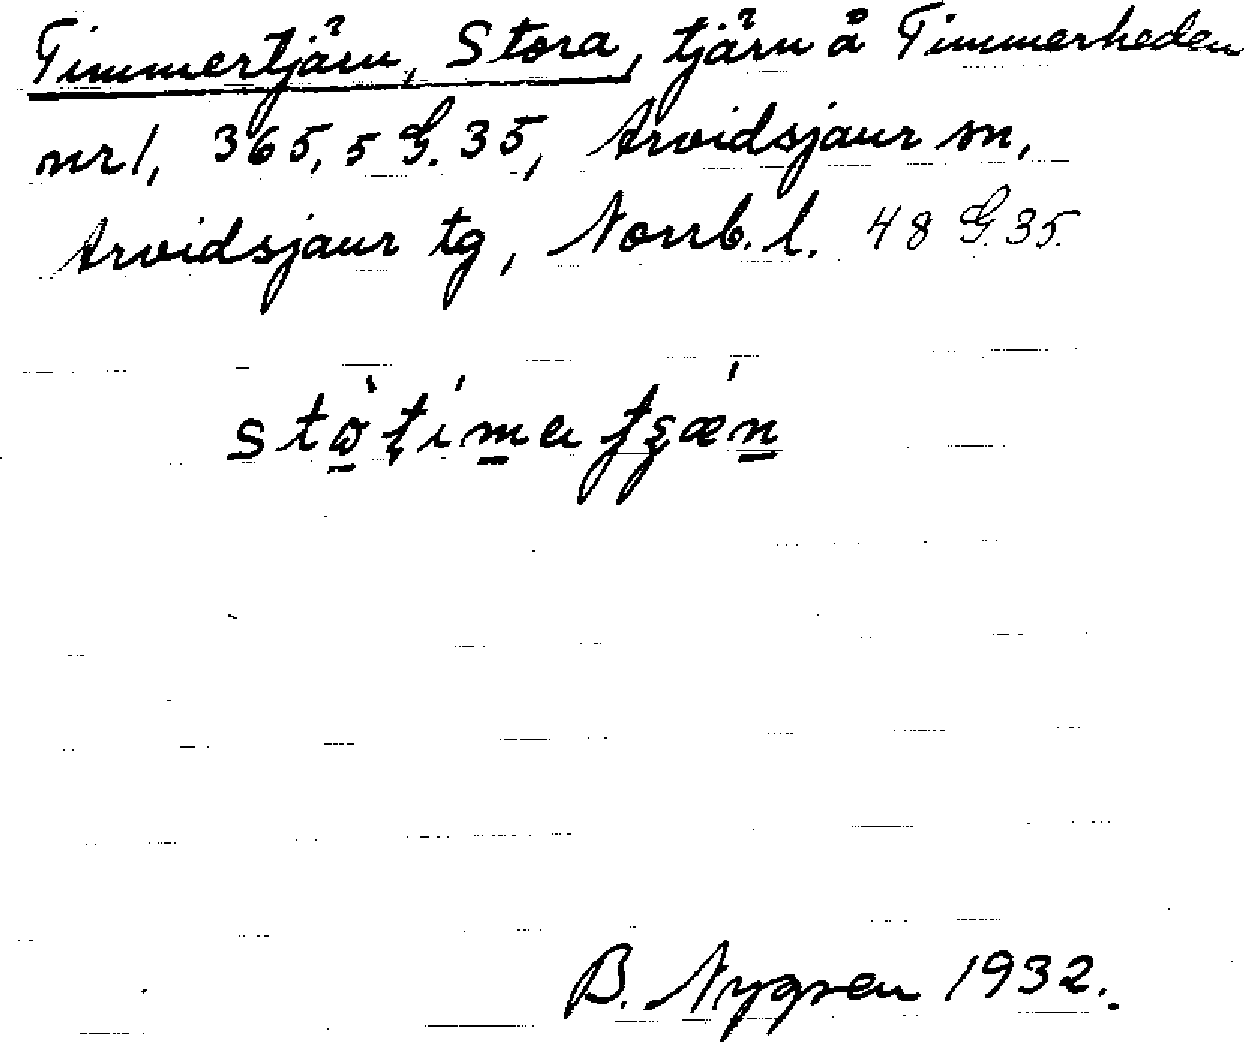 Timmertjärn, Stora, tjärn å Timmerheden
nr 1, 365, 5 G. 35, Arvidsjaur sn,
Arvidsjaur tg, Norrb. l. 48 G. 35.
B. Nygren 1932.